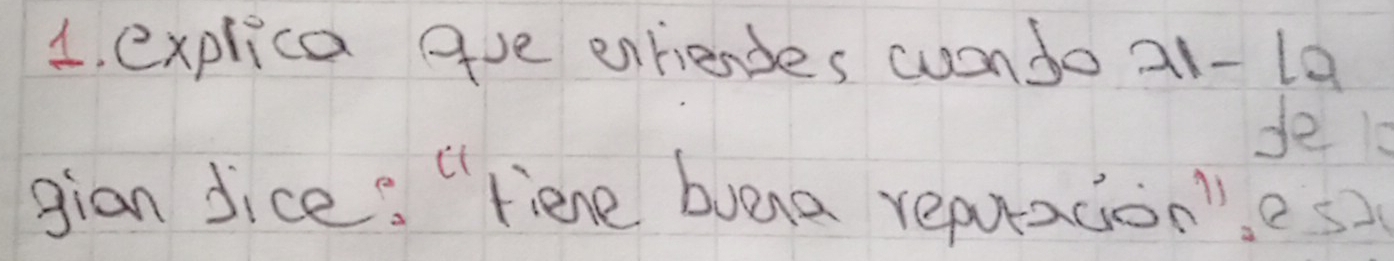 1. explica que entiendes cuando al- la
de
gian dice: "tiene buena reputación".